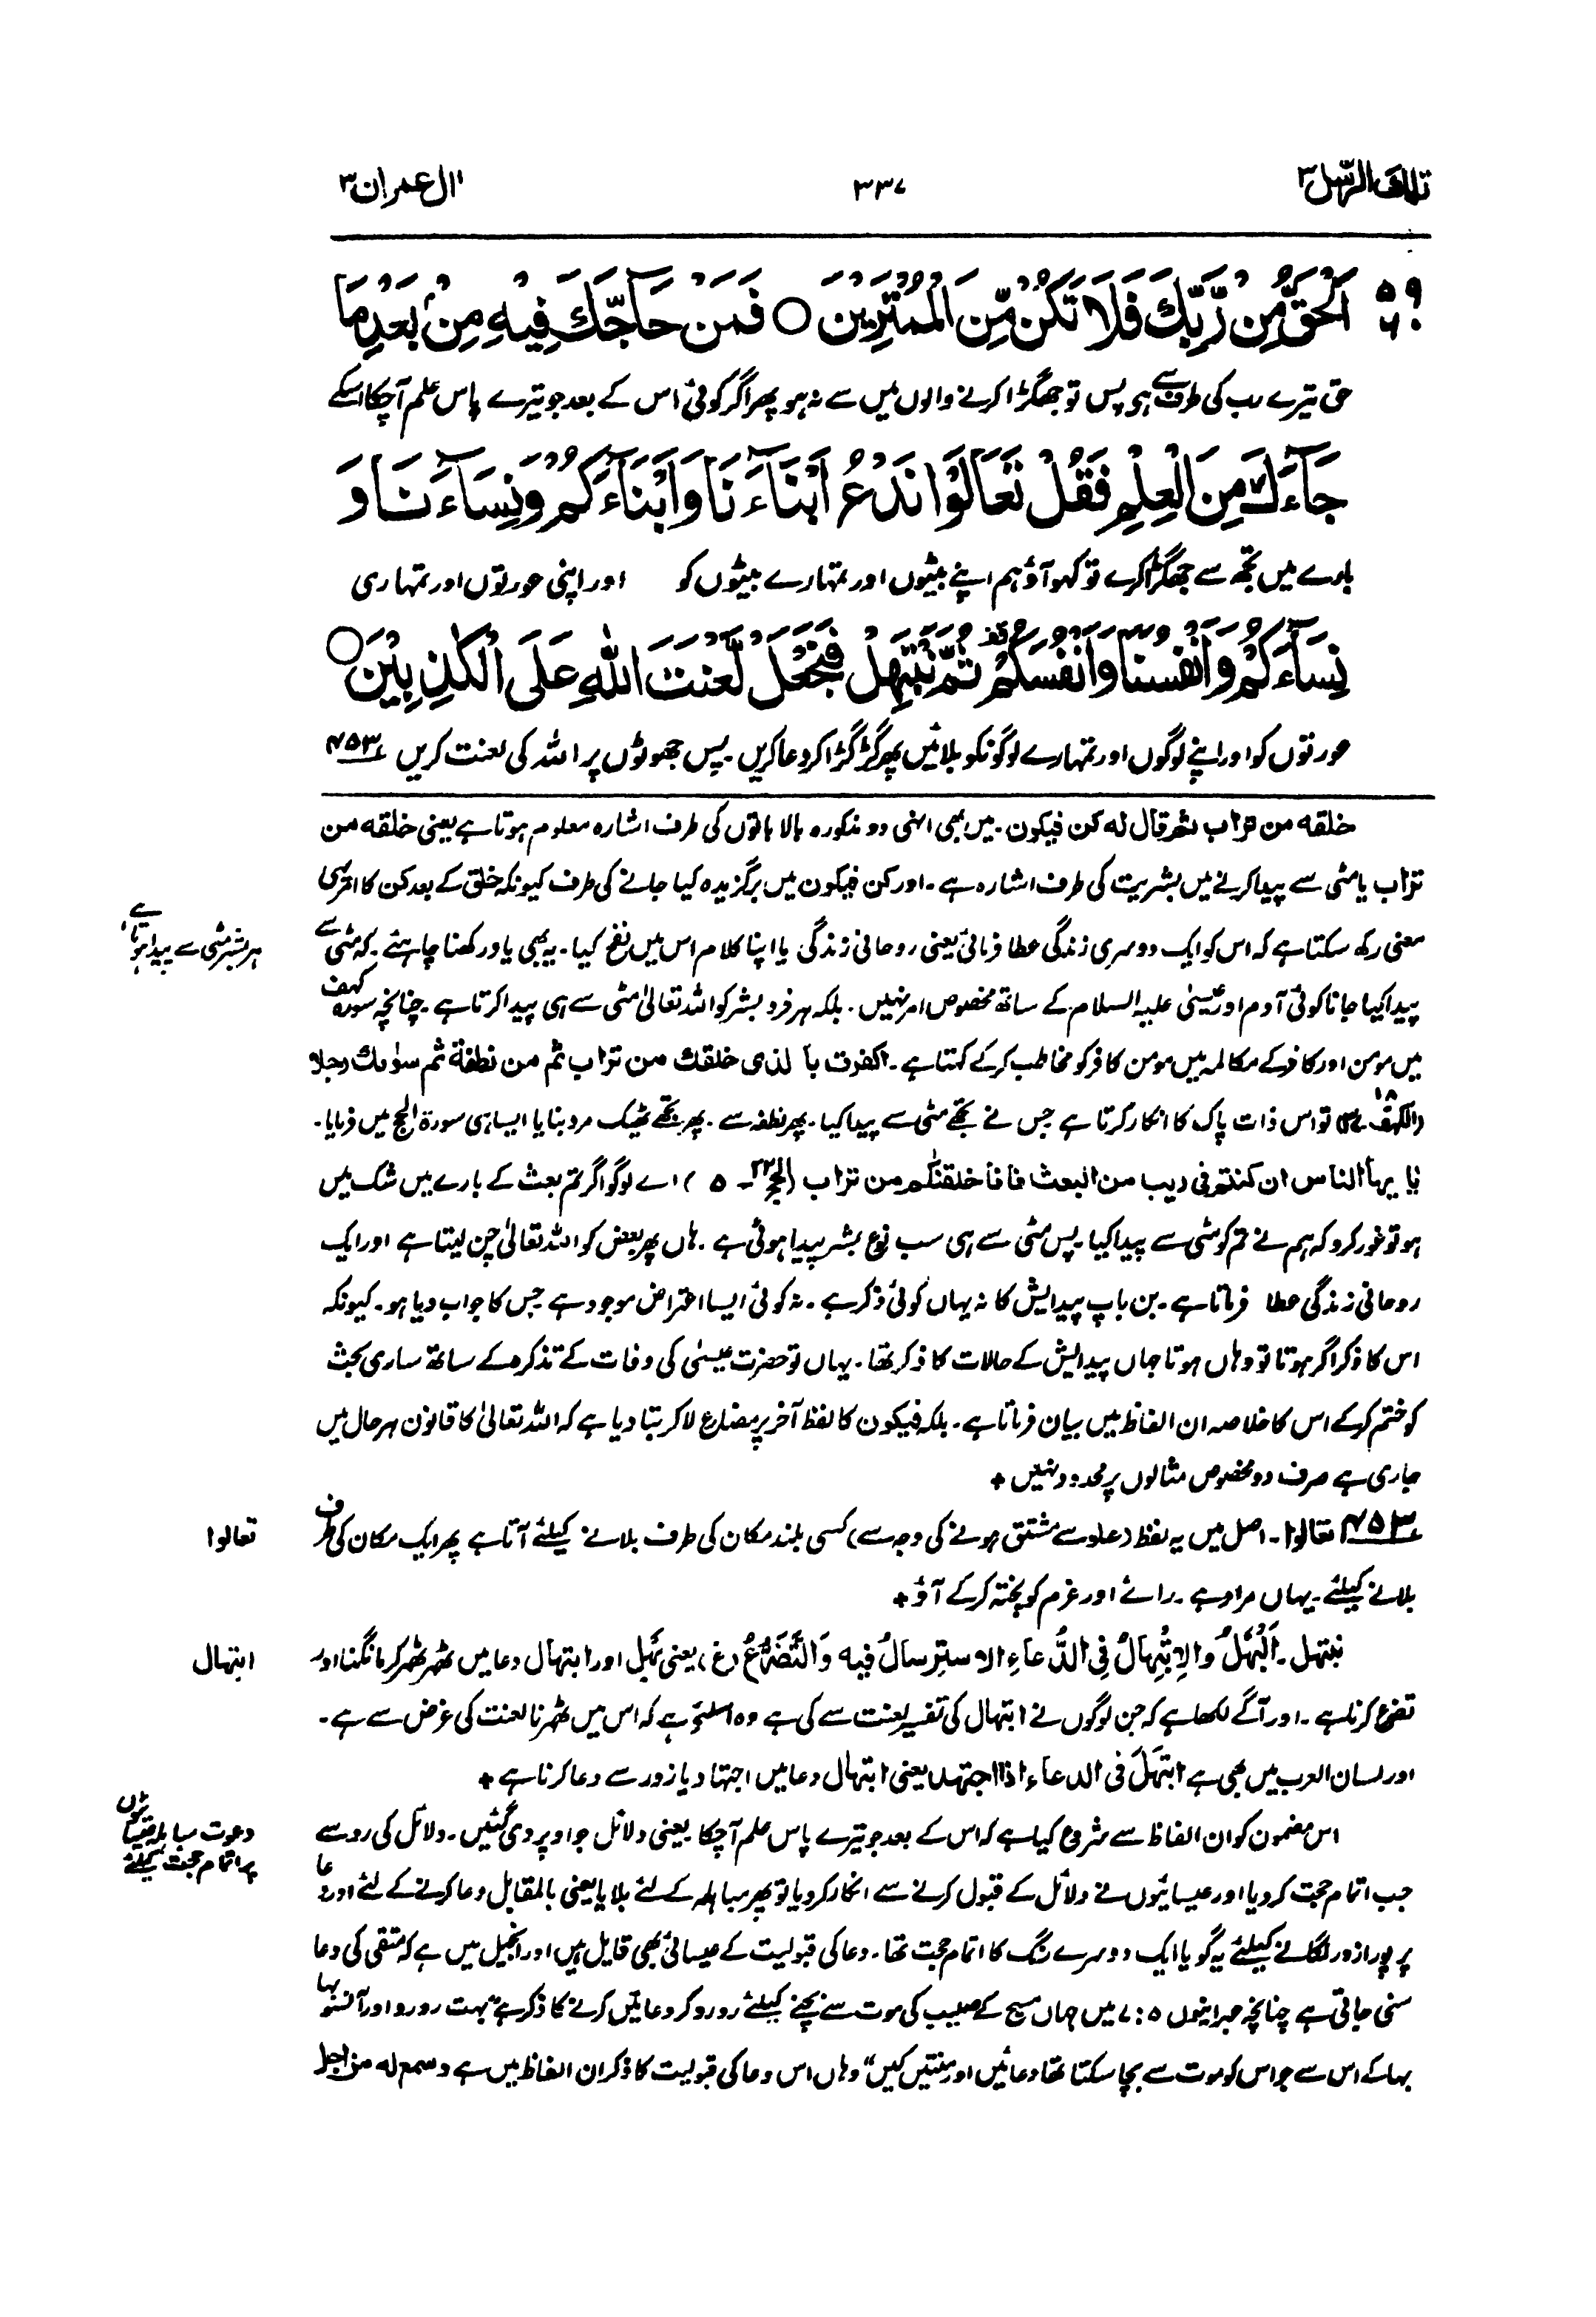 تلك الرسل ۳
۳۳۷
اٰل عمران ۳
۵۹ اَلْحَقُّ مِنْ رَّبِّكَ فَلَا تَكُنْ مِّنَ الْمُمْتَرِيْنَ ○ فَمَنْ حَآجَّكَ فِيْهِ مِنْۢ بَعْدِ مَا
حق تیرے رب کی طرف سے ہی پس تو جھگڑا کرنے والوں میں سے نہ ہو پھر اگر کوئی اس کے بعد جو تیرے پاس علم آچکا اسکے
جَآءَكَ مِنَ الْعِلْمِ فَقُلْ تَعَالَوْا نَدْعُ اَبْنَآءَنَا وَاَبْنَآءَكُمْ وَنِسَآءَنَا وَ
بارے میں تجھ سے جھگڑا کرے تو کہو آؤ ہم اپنے بیٹیوں اور تمہارے بیٹوں کو اور اپنی عورتوں اور تمہاری
نِسَآءَكُمْ وَاَنْفُسَنَا وَاَنْفُسَكُمْ قف ثُمَّ نَبْتَهِلْ فَنَجْعَلْ لَّعْنَتَ اللّٰهِ عَلَى الْكٰذِبِيْنَ ○
عورتوں کو اور اپنے لوگوں اور تمہارے لوگونکو بلائیں پھر گڑگڑا کر دعا کریں۔ پس جھوٹوں پر اللہ کی لعنت کریں ۴۵۳
خلقه من تراب ثم قال له كن فيكون۔ میں بھی انہی دو مذکورہ بالا باتوں کی طرف اشارہ معلوم ہوتا ہے یعنی خلقه من
تراب یا مٹی سے پیدا کرنے میں بشریت کی طرف اشارہ ہے۔ اور کن فیکون میں برگزیدہ کیا جانے کی طرف کیونکہ خلق کے بعد کن کا امر یہی
معنی رکھ سکتا ہے کہ اس کو ایک دوسری زندگی عطا فرمائی یعنی روحانی زندگی یا اپنا کلام اس میں نفخ کیا۔ یہ بھی یاد رکھنا چاہئے۔ کہ مٹی سے
ہر بشر مٹی سے پیدا ہوتا ہے
پیدا کیا جانا کوئی آدم اور عیسیٰ علیہ السلام کے ساتھ مخصوص امر نہیں۔ بلکہ ہر فرد بشر کو اللہ تعالیٰ مٹی سے ہی پیدا کرتا ہے۔ چنانچہ سورہ کہف
میں مومن اور کافر کے مکالمہ میں مومن کافر کو مخاطب کرکے کہتا ہے۔ اکفرت بالذی خلقك من تراب ثم من نطفة ثم سوٰىك رجلا
(الکہف ۱۸) تو اس ذات پاک کا انکار کرتا ہے جس نے تجھے مٹی سے پیدا کیا۔ پھر نطفہ سے۔ پھر تجھے ٹھیک مرد بنایا ایسا ہی سورۃ الحج میں فرمایا۔
یٰا یہا الناس ان کنتم فی ریب من البعث فانا خلقنٰکم من تراب (الحج ۲۲-۵) اے لوگو اگر تم بعث کے بارے میں شک میں
ہو تو غور کرو کہ ہم نے تم کو مٹی سے پیدا کیا پس مٹی سے ہی سب نوع بشر پیدا ہوئی ہے۔ ہاں پھر بعض کو اللہ تعالیٰ چن لیتا ہے اور ایک
روحانی زندگی عطا فرماتا ہے۔ بن باپ پیدایش کا نہ یہاں کوئی ذکر ہے۔ نہ کوئی ایسا اعتراض موجود ہے جس کا جواب دیا ہو۔ کیونکہ
اس کا ذکر اگر ہوتا تو وہاں ہوتا جہاں پیدایش کے حالات کا ذکر تھا۔ یہاں تو حضرت عیسیٰ کی وفات کے تذکرہ کے ساتھ ساری بحث
کو ختم کرکے اس کا خلاصہ ان الفاظ میں بیان فرماتا ہے۔ بلکہ فیکون کا لفظ آخر پر مضارع لا کر بتا دیا ہے کہ اللہ تعالیٰ کا قانون ہر حال میں
جاری ہے صرف دو مخصوص مثالوں پر محدود نہیں +
۴۵۳ تعالوا۔ اصل میں یہ لفظ (علو سے مشتق ہونے کی وجہ سے) کسی بلند مکان کی طرف بلانے کیلئے آتا ہے پھر ایک مکان کی طرف
تعالوا
بلانے کیلئے۔ یہاں مراد ہے۔ رائے اور عزم کو پختہ کرکے آؤ +
نبتہل۔ اَلْبُهْلُ وَالِابْتِهَالُ فِي الدُّعَاءِ الاسترسالُ فیه وَالتَّضَرُّعُ (غ)، یعنی بُہل اور ابتہال دعا میں ٹھہر ٹھہر کر مانگنا اور
ابتہال
تضرع کرنا ہے۔ اور آگے لکھا ہے کہ جن لوگوں نے ابتہال کی تفسیر لعنت سے کی ہے وہ اسلئے ہے کہ اس میں ٹھہرنا لعنت کی غرض سے ہے۔
اور لسان العرب میں بھی ہے ابتَهَلَ فی الدعاء اذا اجتہد یعنی ابتہال دعا میں اجتہاد یا زور سے دعا کرنا ہے +
اس مضمون کو ان الفاظ سے شروع کیا ہے کہ اس کے بعد جو تیرے پاس علم آچکا یعنی دلائل جو اوپر دی گئیں۔ دلائل کی رو سے
دعوت مباہلہ عیسائیوں پر اتمام حجت کیلئے
جب اتمام حجت کر دیا اور عیسائیوں نے دلائل کے قبول کرنے سے انکار کر دیا تو پھر مباہلہ کے لئے بلایا یعنی بالمقابل دعا کرنے کے لئے اور دعا
پر پورا زور لگانے کیلئے یہ گویا ایک دوسرے رنگ کا اتمام حجت تھا۔ دعا کی قبولیت کے عیسائی بھی قایل ہیں اور انجیل میں ہے کہ متقی کی دعا
سنی جاتی ہے چنانچہ عبرانیوں ۵:۷ میں جہاں مسیح کے صلیب کی موت سے بچنے کیلئے رو رو کر دعائیں کرنے کا ذکر ہے "بہت رو رو اور آنسو بہا
بہا کے اس سے جو اس کو موت سے بچا سکتا تھا دعائیں اور منتیں کیں" وہاں اس دعا کی قبولیت کا ذکر ان الفاظ میں ہے وسمع له من اجل